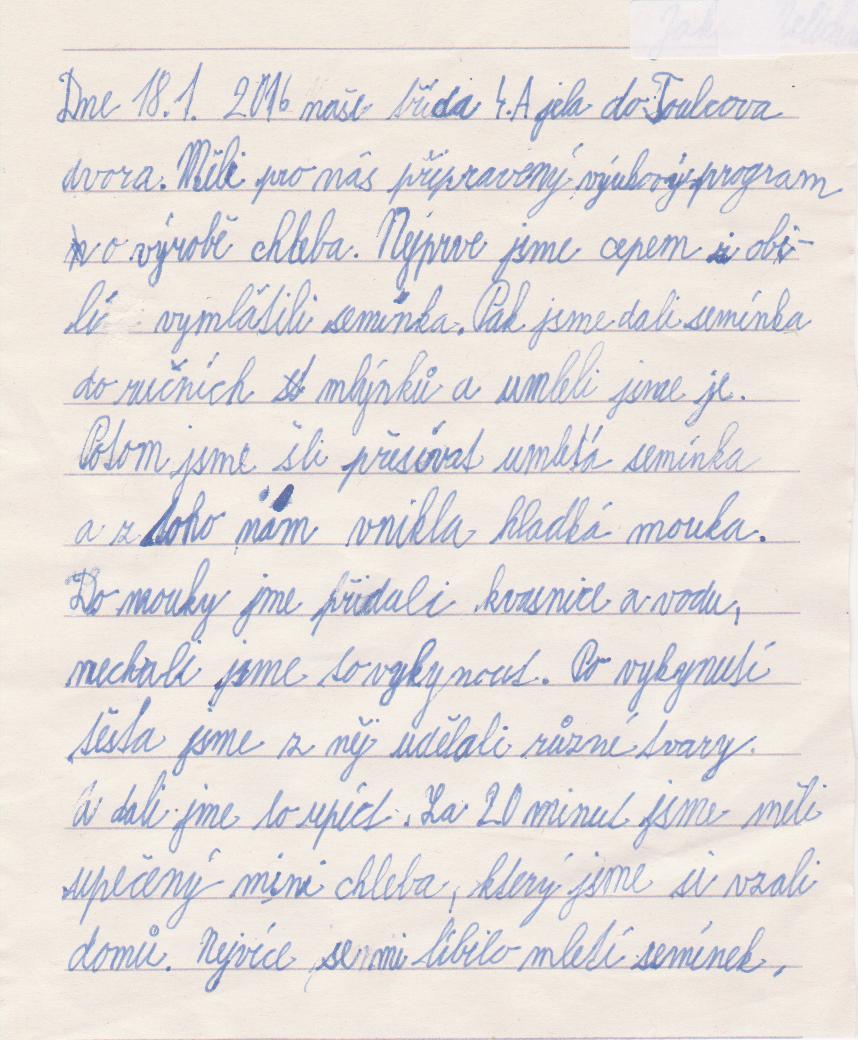 Dne 18.1. 2016 naše třída 4.A jela do Toulcova
dvora. Měli pro nás připravený výukový program
o výrobě chleba. Nejprve jsme cepem z obi-
lí vymlátili semínka. Pak jsme dali semínka
do ručních mlýnků a umleli jsme je.
Potom jsme šli přesívat umletá semínka
a z toho nám vnikla hladká mouka.
Do mouky jme přidali kvasnice a vodu,
nechali jsme to vykynout. Po vykynutí
těsta jsme z něj udělali různé tvary.
A dali jme to upíct. Za 20 minut jsme měli
upečený mini chleba, který jsme si vzali
domů. Nejvíce se mi líbilo mletí semínek,